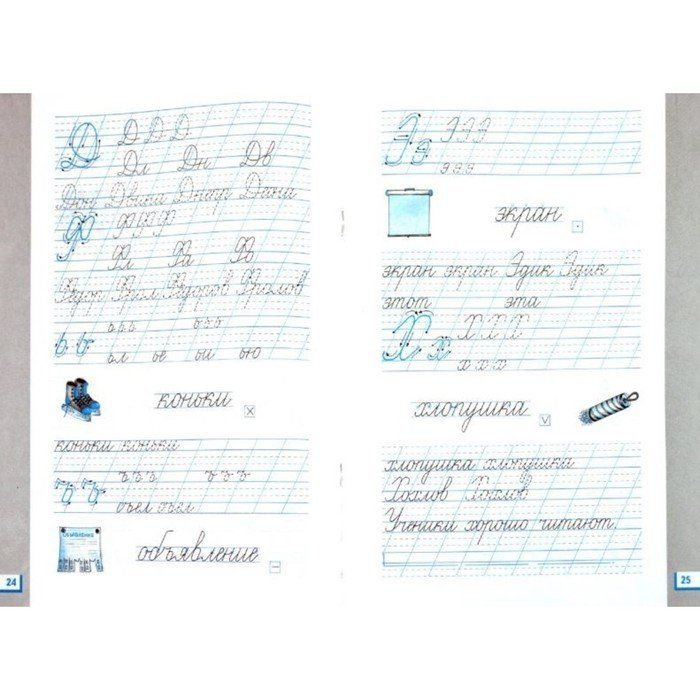 Д Д Д Д
Дл Дн Дв
Дон Двина Днепр Диана
Ф Ф Ф Ф
Фл Фа Фо
Федор Фрол Федоров Фролов
ь ь ььь ььь
ьл ье ьи ью
коньки
коньки коньки
ъ ъ ъъъ ъъъ
ъел ъел
ОБЪЯВЛЕНИЕ
объявление
24
Э э Э Э Э
э э э
экран
экран экран Эдик Эдик
этот эта
Х х Х Х Х
х х х
хлопушка
хлопушка хлопушка
Хохлов Хохлов
Ученики хорошо читают.
25